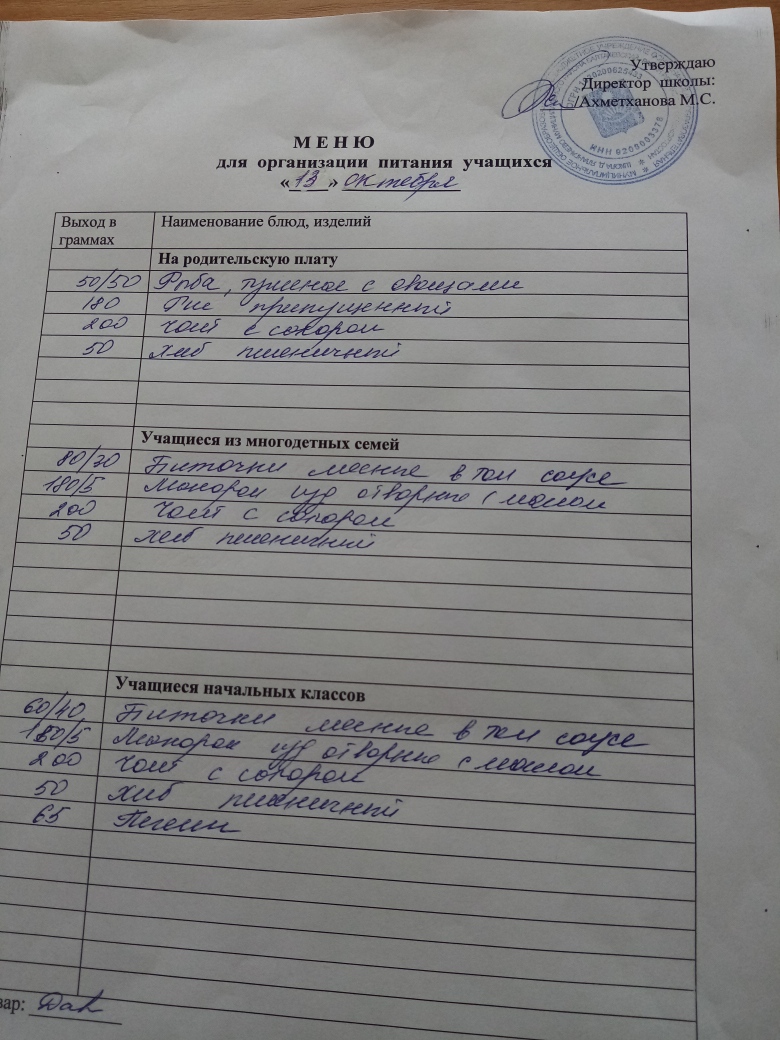 Утверждаю
Директор школы:
/Ахметханова М.С.
М Е Н Ю
для организации питания учащихся
«13» октября
Выход в граммах Наименование блюд, изделий
На родительскую плату
50/50 Рыба, тушеное с овощами
180 Рис припущенный
200 Чай с сахаром
50 Хлеб пшеничный
Учащиеся из многодетных семей
80/30 Биточки мясные в том соусе
180/5 Макарон изд отварные с маслом
200 Чай с сахаром
50 Хлеб пшеничный
Учащиеся начальных классов
60/40 Биточки мясные в том соусе
150/5 Макарон изд отварные с маслом
200 Чай с сахаром
50 Хлеб пшеничный
65
вар: